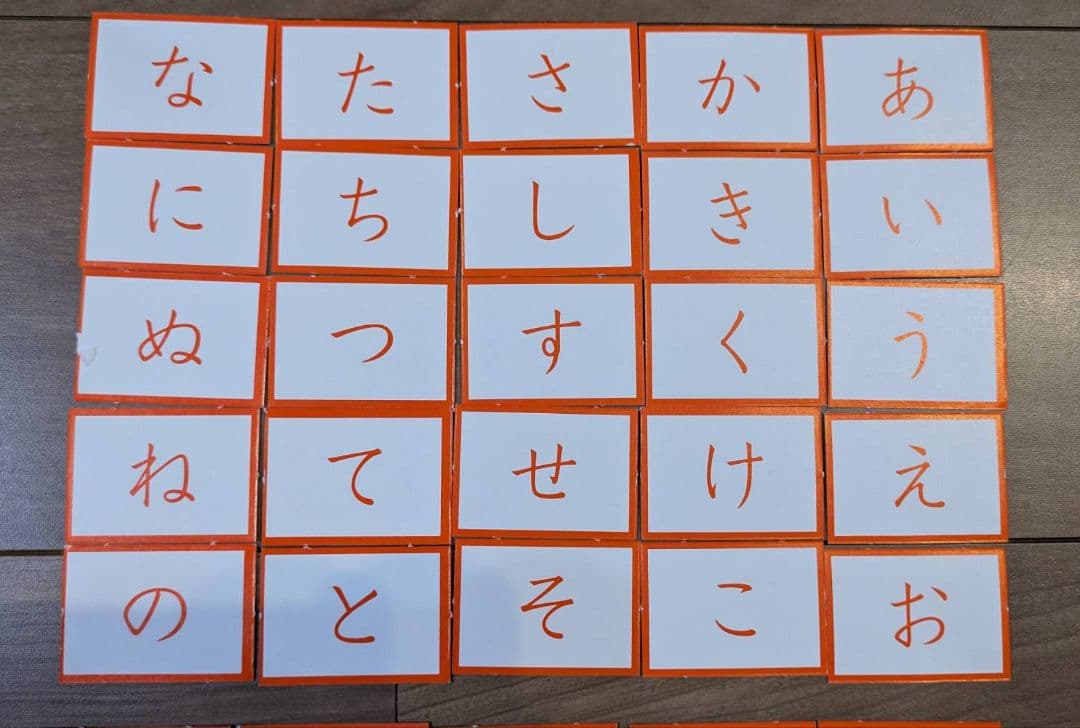 あ
い
う
え
お
か
き
く
け
こ
さ
し
す
せ
そ
た
ち
つ
て
と
な
に
ぬ
ね
の